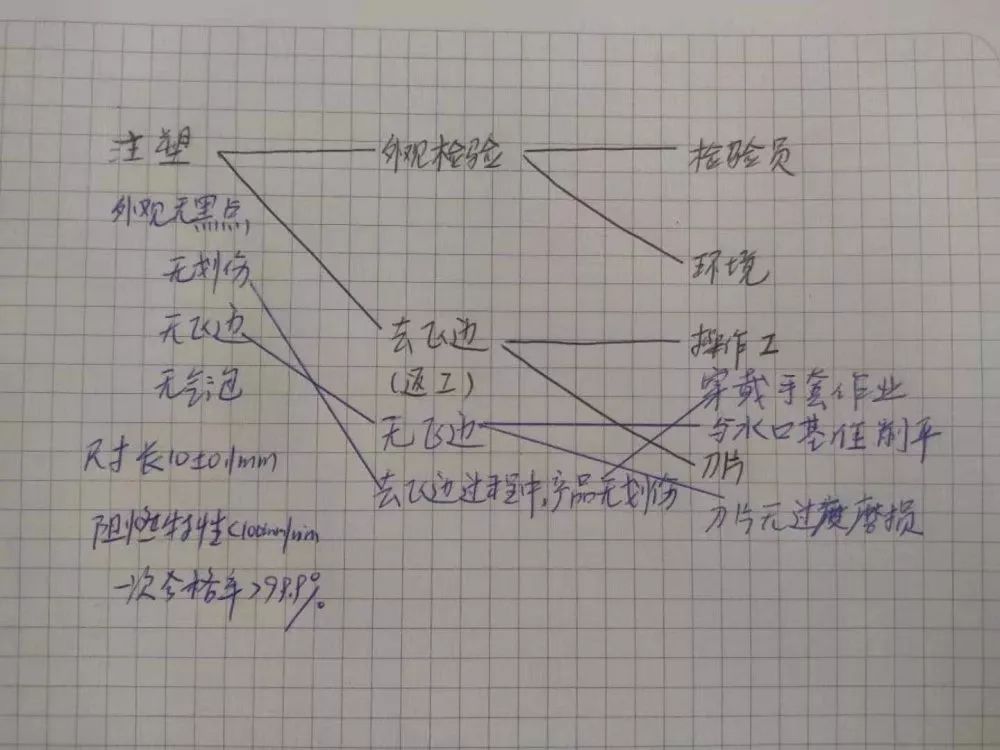 注塑
外观无黑点
无划伤
无飞边
无气泡
尺寸长10±0.1mm
阻燃特性<100mm/min
一次合格率>99.9%
外观检验
去飞边
(返工)
无飞边
去飞边过程中,产品无划伤
检验员
环境
操作工
穿戴手套作业
与水口基准削平
刀片
刀片无过度磨损